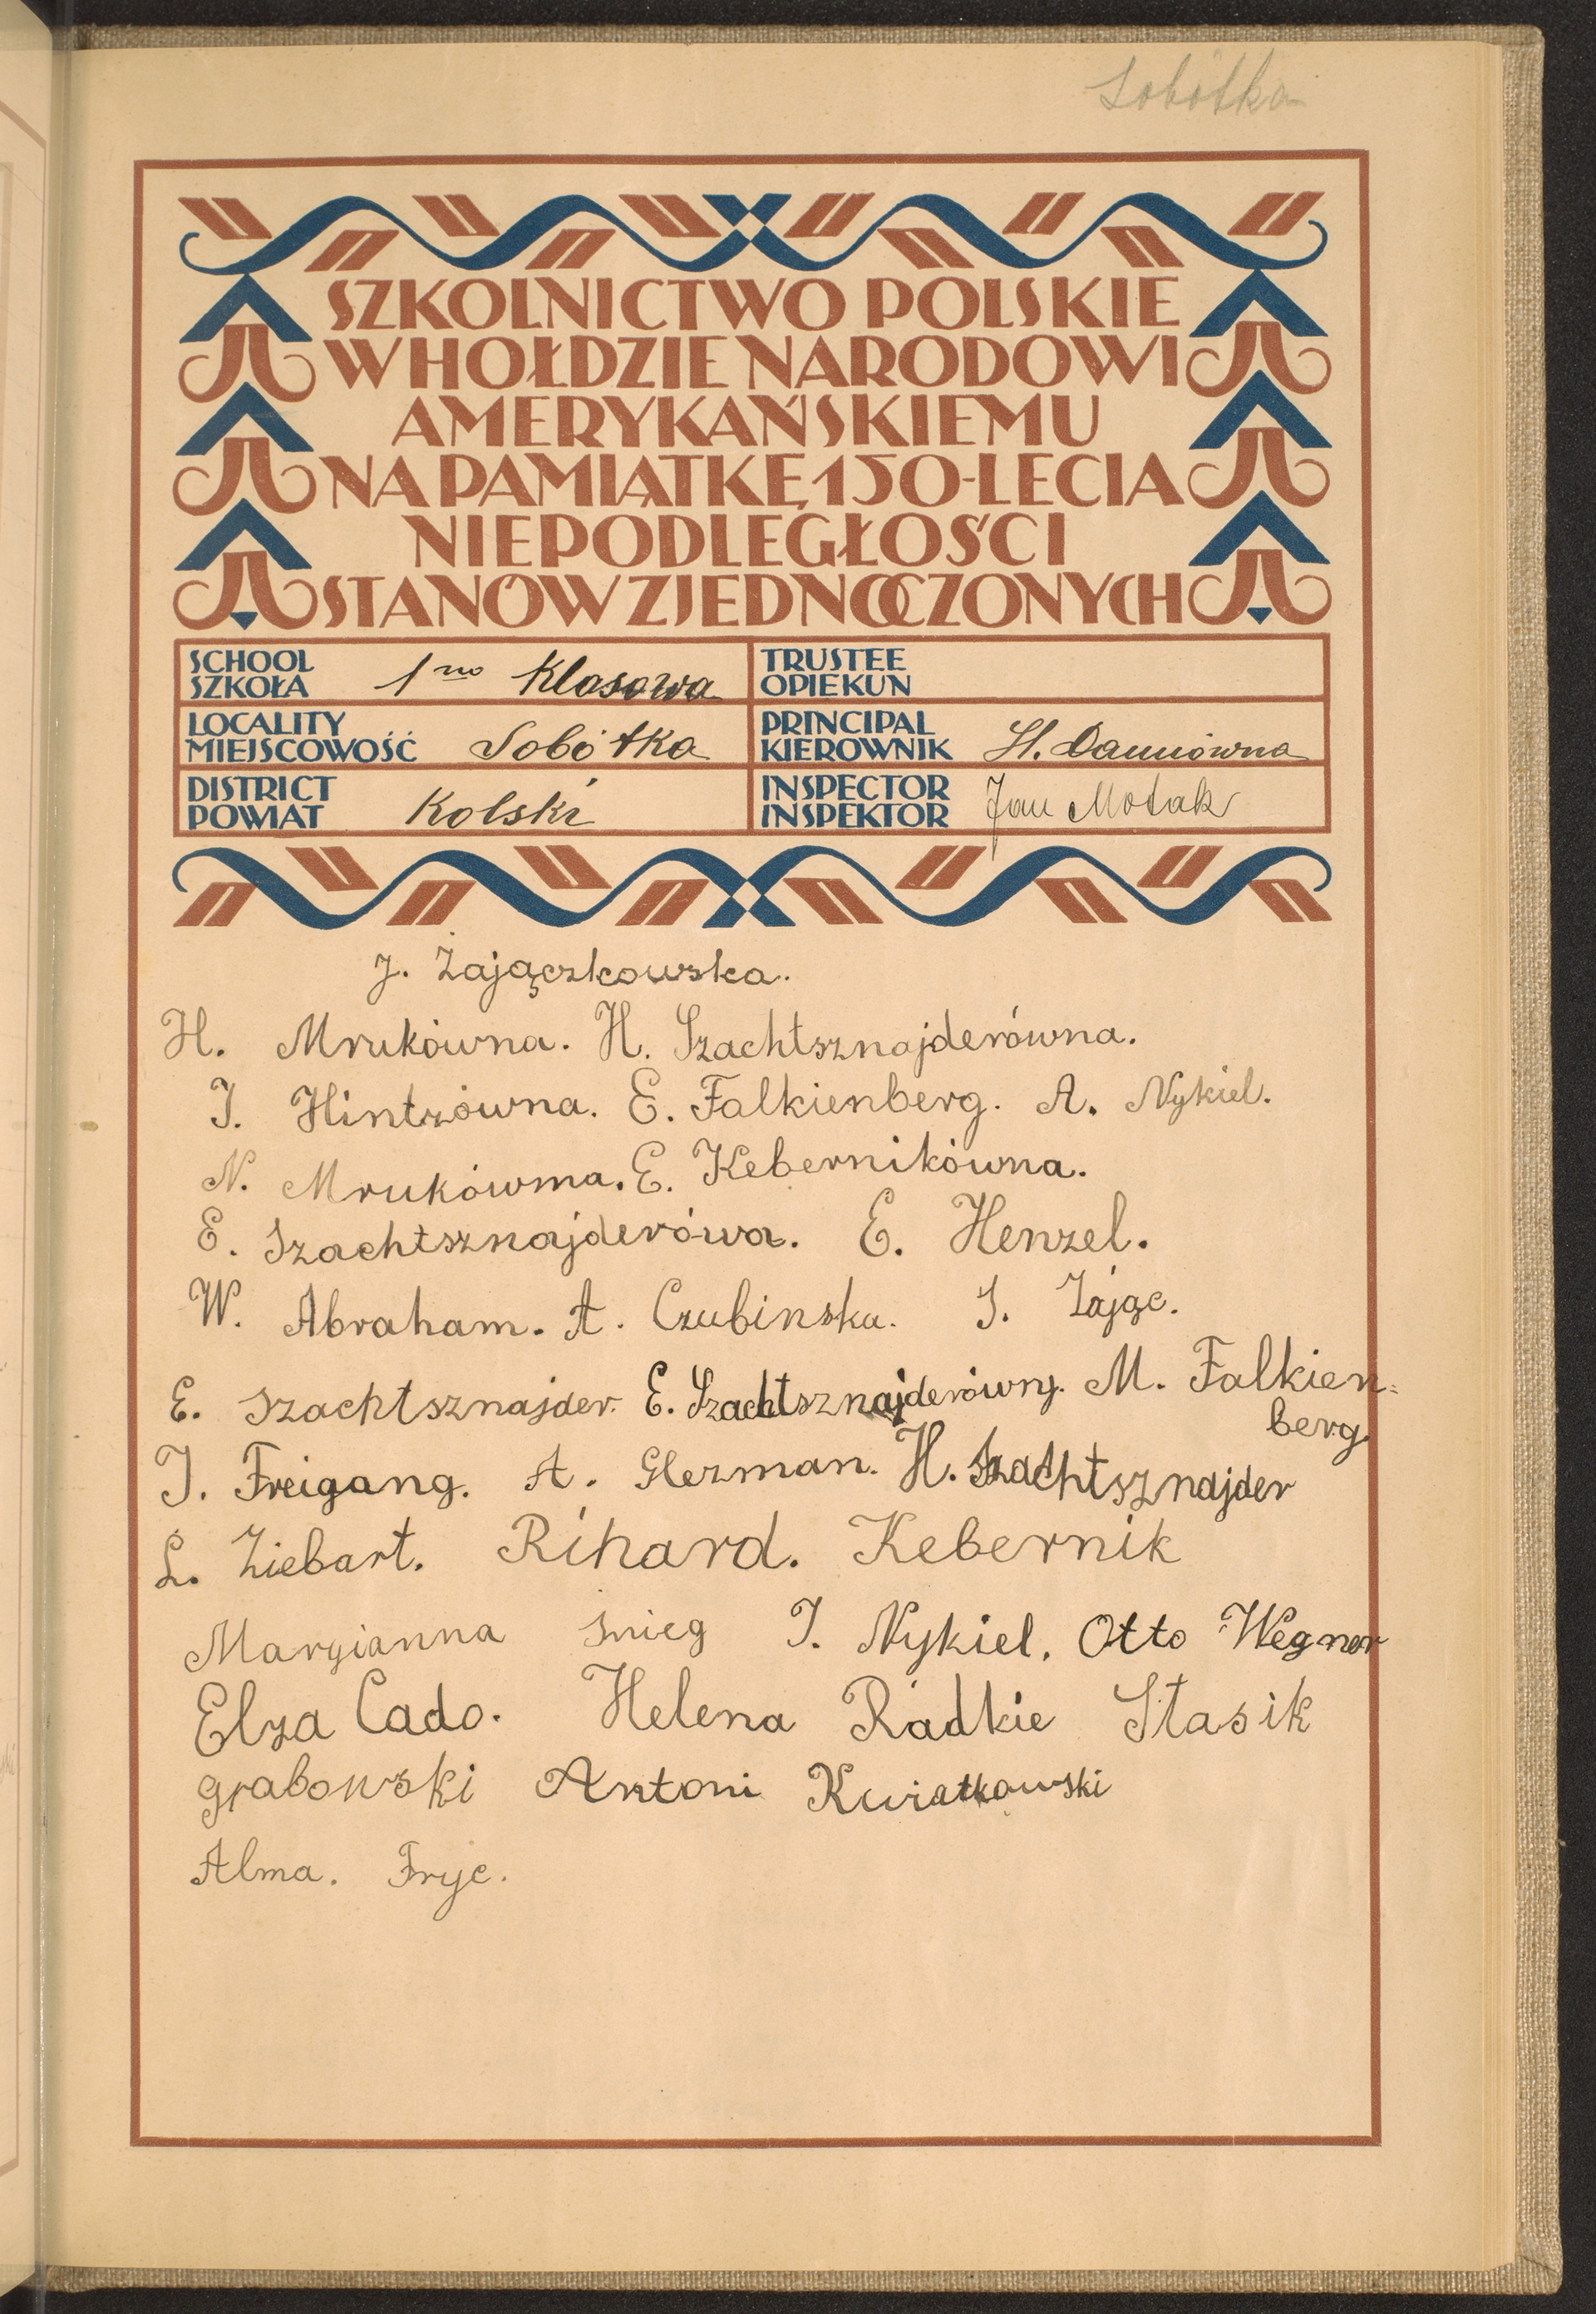 Sobótka
SZKOLNICTWO POLSKIE
W HOŁDZIE NARODOWI
AMERYKAŃSKIEMU
NA PAMIĄTKĘ 150-LECIA
NIEPODLEGŁOŚCI
STANÓW ZJEDNOCZONYCH
SCHOOL
SZKOŁA 1 no Klasowa
TRUSTEE
OPIEKUN
LOCALITY
MIEJSCOWOŚĆ Sobótka
PRINCIPAL
KIEROWNIK St. Dannówna
DISTRICT
POWIAT Kolski
INSPECTOR
INSPEKTOR Jan Motak
J. Zajączkowska.
H. Mrukówna. H. Szachtsznajderówna.
J. Hintzówna. E. Falkienberg. A. Nykiel.
N. Mrukówma. E. Kebernikówna.
E. Szachtsznajderówa. E. Henzel.
W. Abraham. A. Czubinska. J. Zając.
E. Szachtsznajder. E. Szachtsznajderówny. M. Falkien=
berg.
J. Freigang. A. Glezman. H. Szachtsznajder
L. Ziebart. Rihard. Kebernik
Maryianna Snieg J. Nykiel. Otto Wegner
Elza Cado. Helena Radkie Stasik
grabowski Antoni Kwiatkowski
Alma. Fryc.